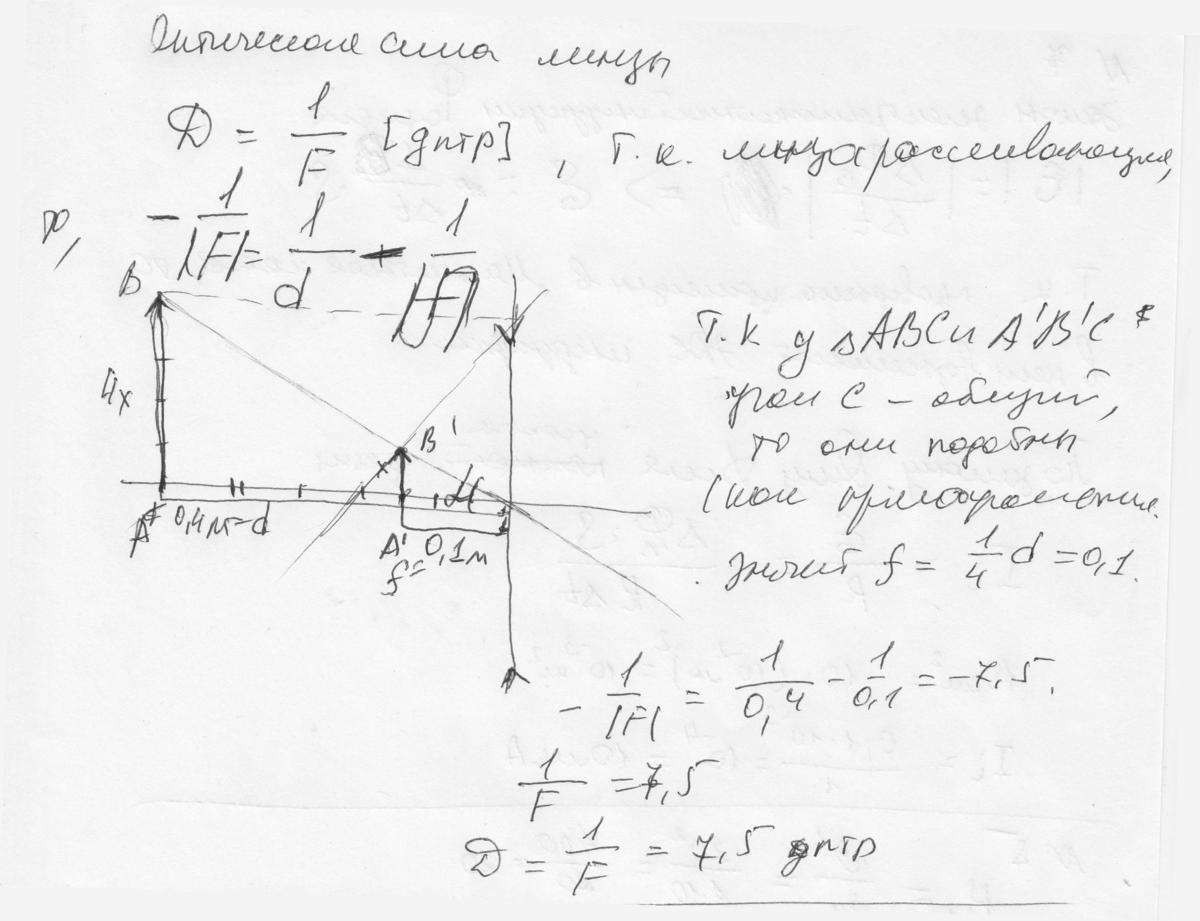 Оптическая сила линзы
D = 1/F [дптр], т.к. линза рассеивающая,
то, - 1/|F| = 1/d - 1/|f|
B
4x
B'
x
C
A
0,4м=d
A'
f=0,1м
т.к у ΔABC и A'B'C
угол C – общий,
то они подобны
(как прямоугольные.
Значит f = 1/4 d = 0,1.
- 1/|F| = 1/0,4 - 1/0,1 = -7,5.
1/F = 7,5
D = 1/F = 7,5 дптр